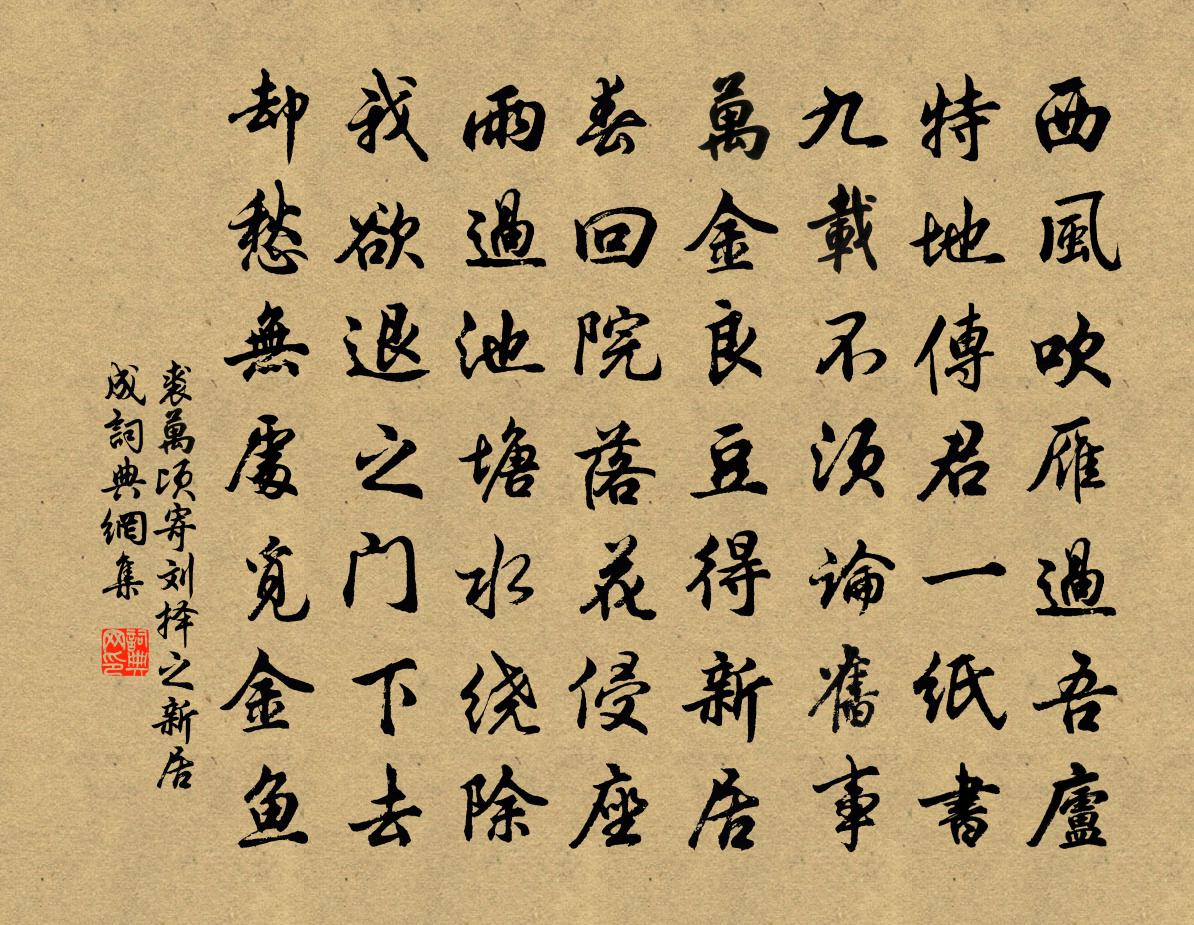 西風吹雁過吾廬
特地傳君一紙書
九載不須論舊事
萬金良豆得新居
春回院落花侵座
雨過池塘水绕除
我欲退之门下去
却愁無處覓金鱼
裘萬頃寄刘择之新居
成詞典網集
詞典网印